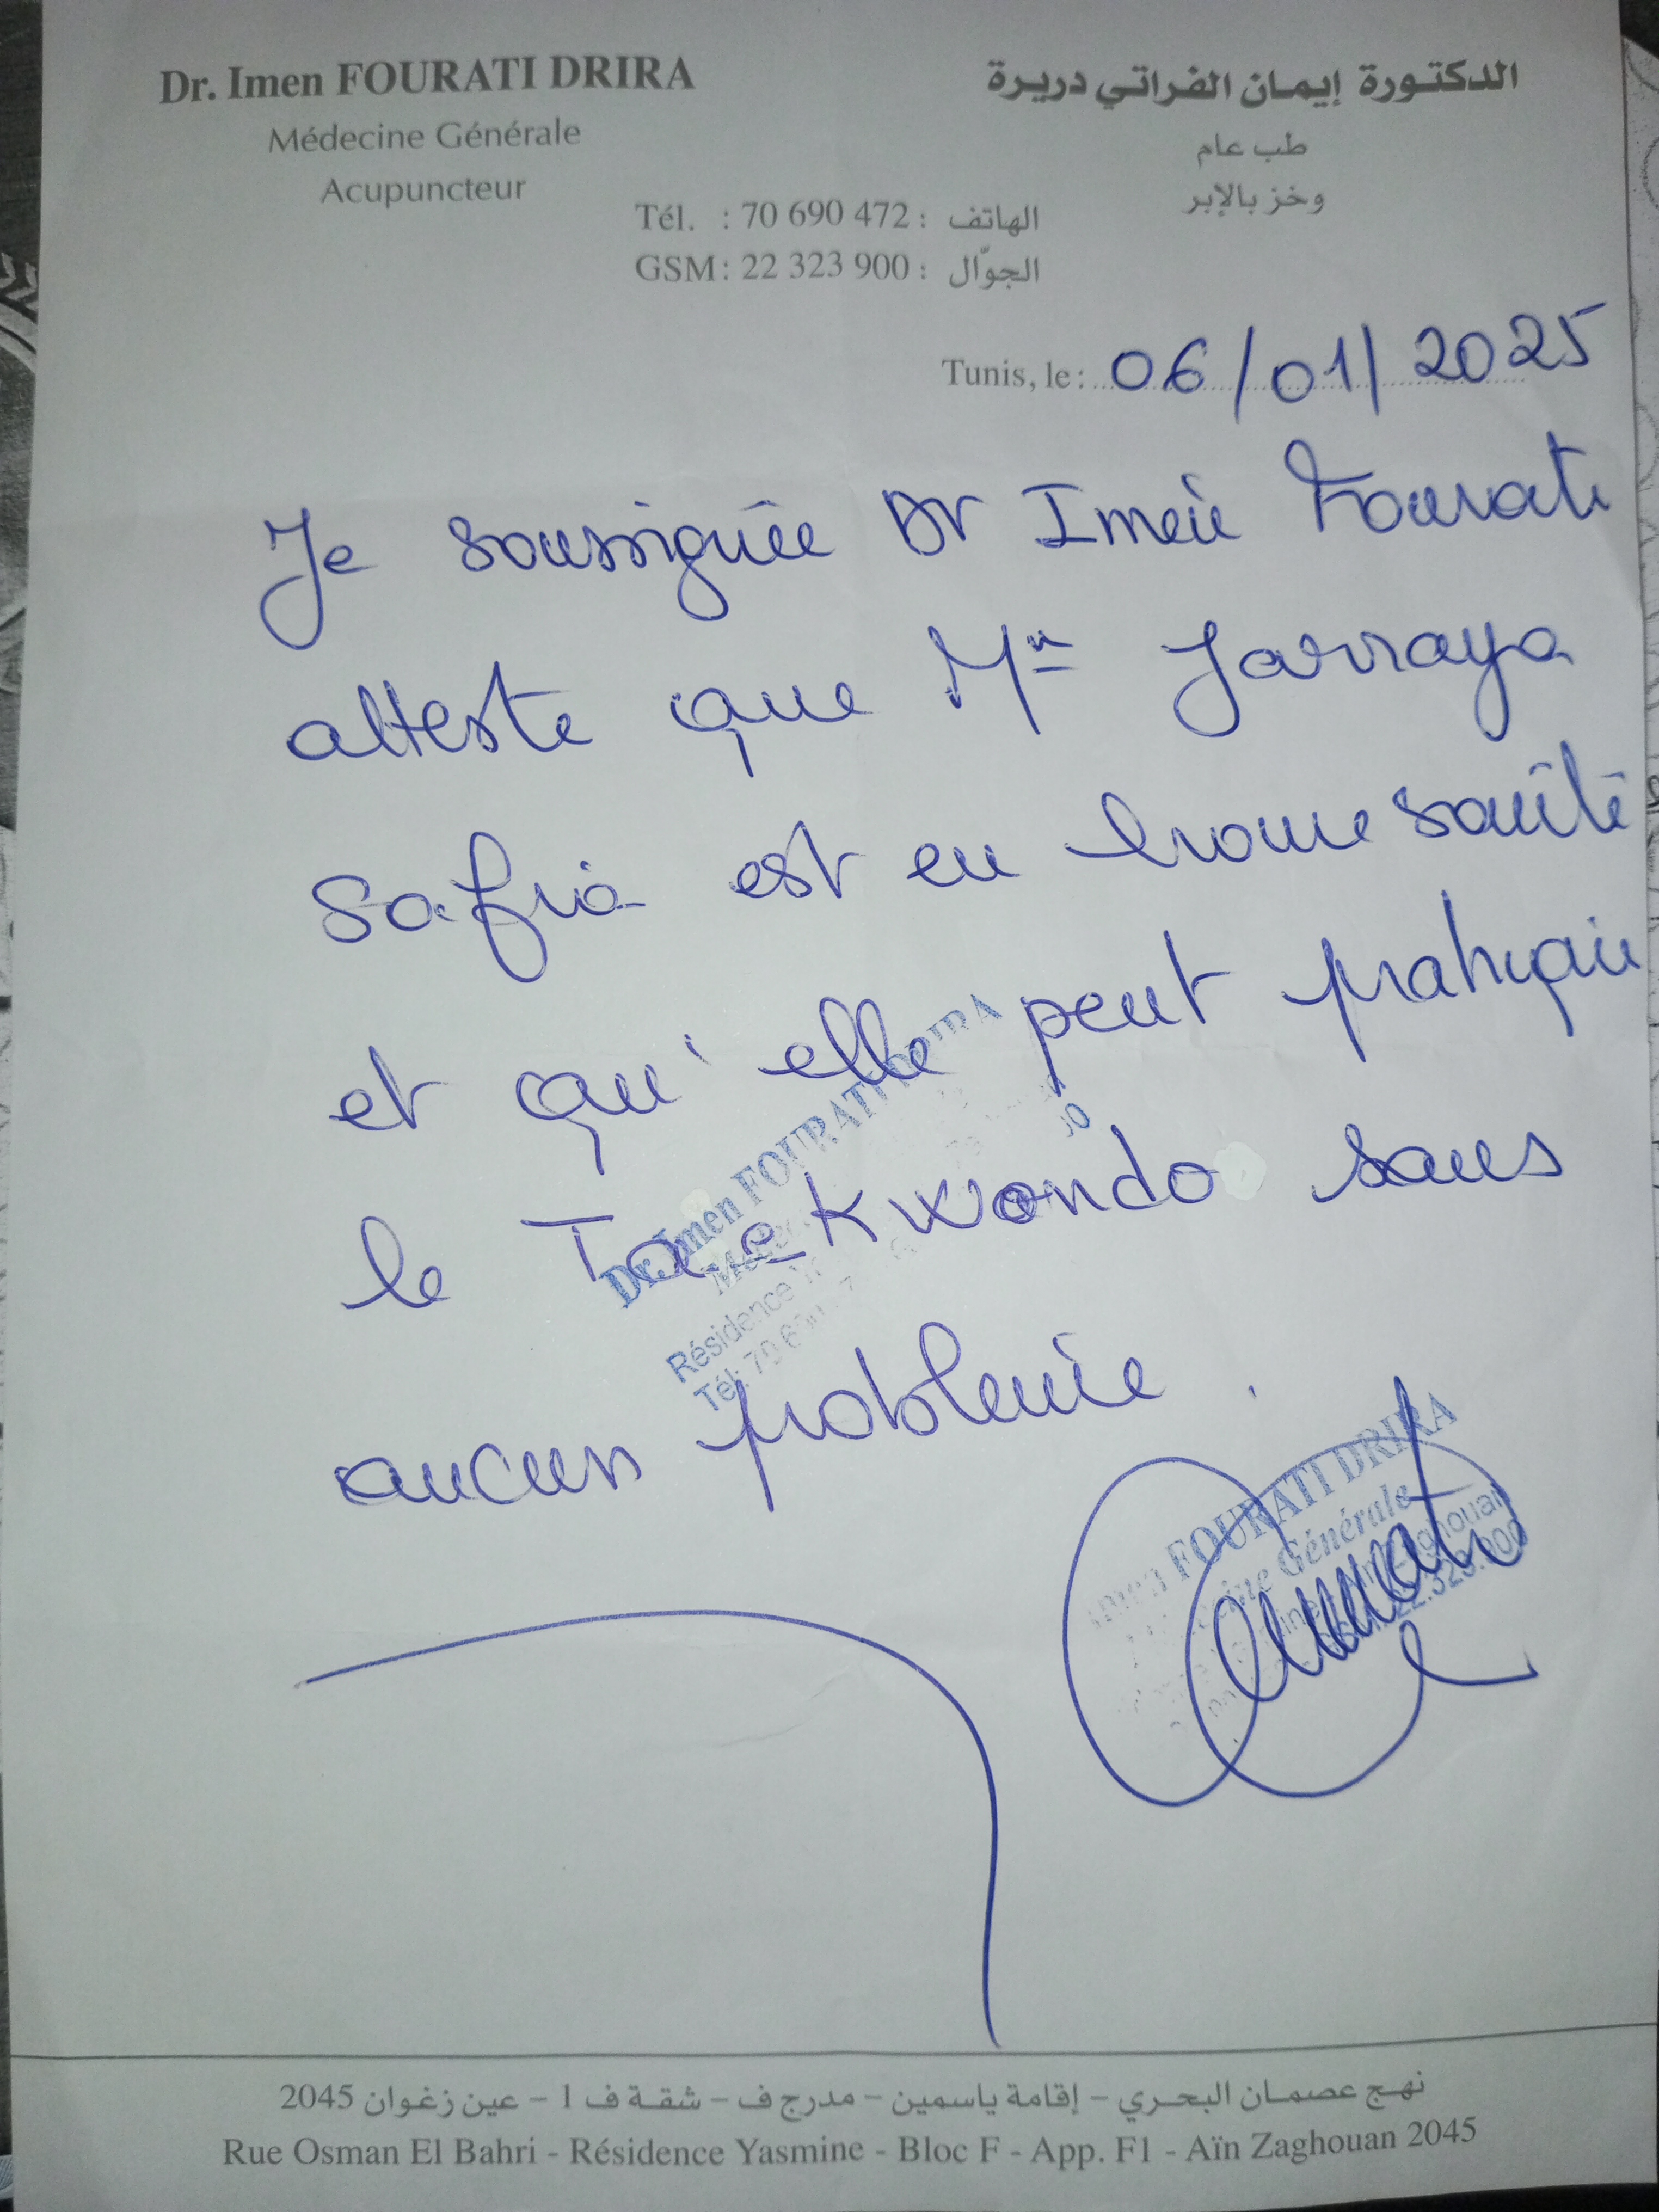 Dr. Imen FOURATI DRIRA
Médecine Générale
Acupuncteur
الدكتورة إيمان الفراتي دريرة
طب عام
وخز بالإبر
Tél. : 70 690 472 : الهاتف
GSM : 22 323 900 : الجوّال
Tunis, le : 06/01/2025
Je soussignée Dr Imen Fourati
atteste que Mlle Jarraya
Safia est en bonne santé
et qu'elle peut pratiquer
le Taekwondo sans
aucun problème.
Dr. Imen FOURATI DRIRA
Résidence
Tél: 70
FOURATI DRIRA
Générale
نهج عصمان البحري – إقامة ياسمين – مدرج ف – شقة ف 1 – عين زغوان 2045
Rue Osman El Bahri - Résidence Yasmine - Bloc F - App. F1 - Aïn Zaghouan 2045